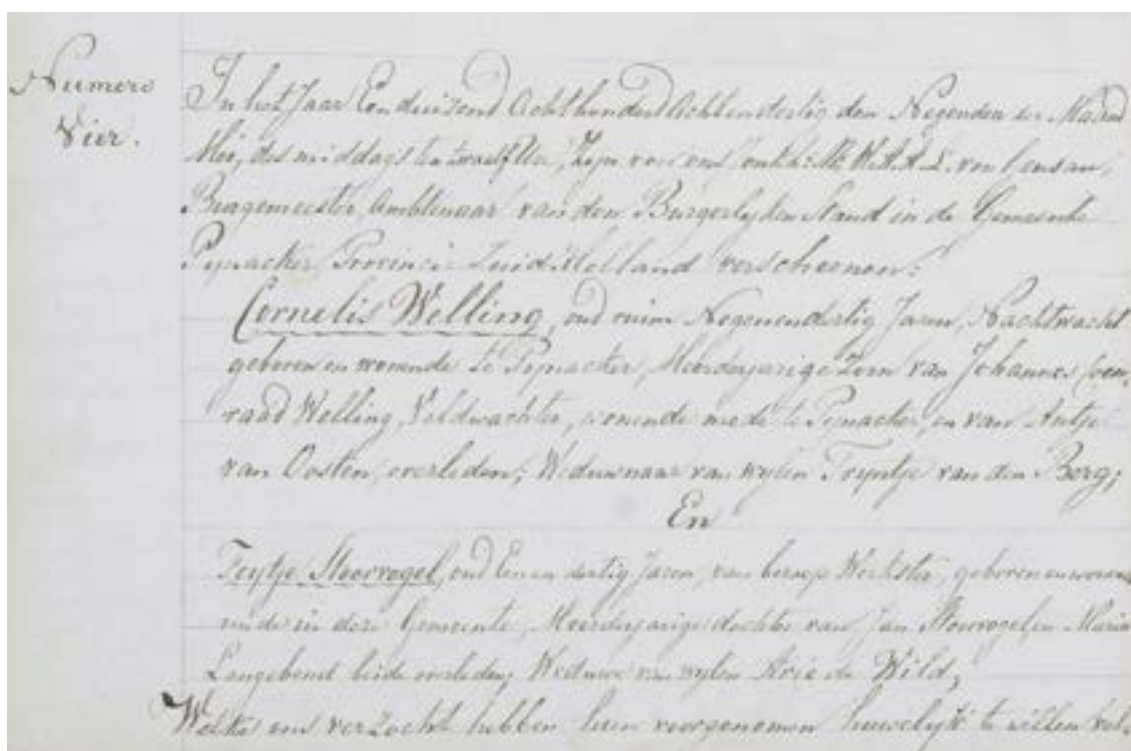 Numero
Vier.
In het Jaar Een duizend Achthonderd Achtendertig den Negenden der Maand
Mei, des middags ten twaalf Ure, Zijn voor ons Jonkh: Mr. W. A. A. L. von
Burgemeester, Ambtenaar van den Burgerlijken Stand in de Gemeente
Pijnacker, Provincie Zuid Holland verscheenen:
Cornelis Welling, oud ruim Negenendertig Jaren, Nachtwacht
geboren en wonende te Pijnacker, Meerderjarige Zoon van Johannes Coen-
raad Welling, Veldwachter, wonende mede te Pijnacker, en van Antje
van Oosten, overleden; Weduwnaar van wijlen Trijntje van den Berg;
En
Stoorvogel, oud Een en dertig Jaren, van beroep Werkster, geboren en woo-
nende in deze Gemeente, Meerderjarige dochter van Jan Stoorvogel en Maria
beide overleden, Weduwe van wijlen Arie de Wild,
Welke ons verzocht hebben hun voorgenomen huwelijk te willen vol-